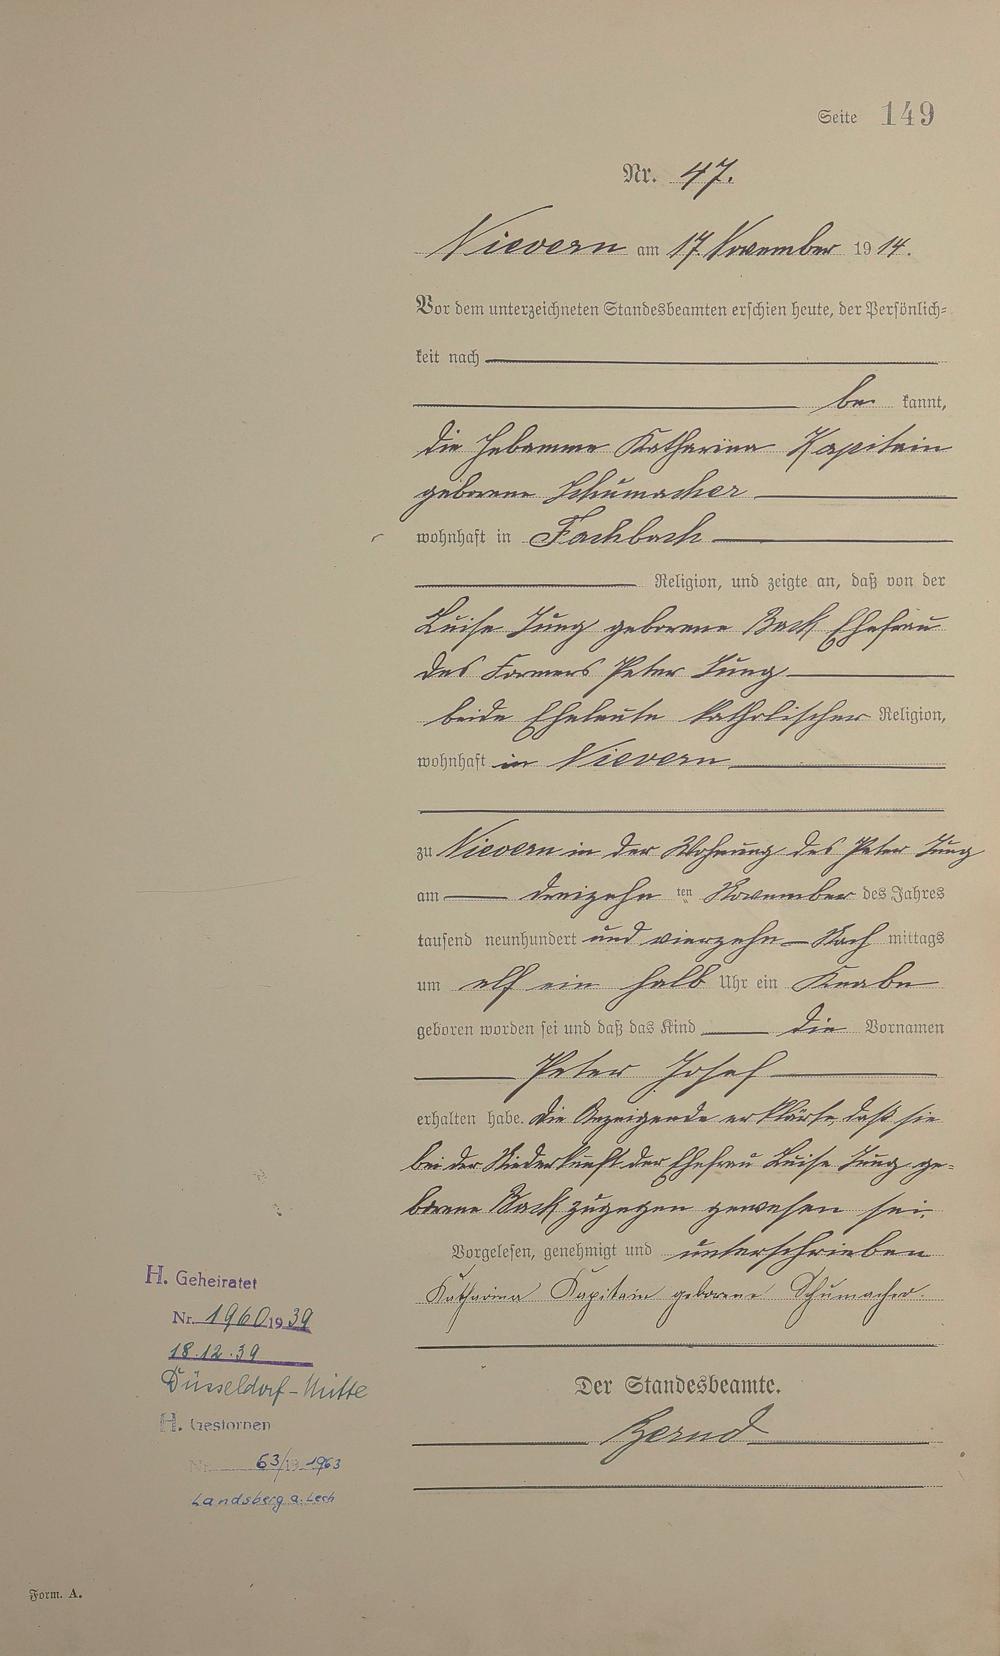 Seite 149
Nr. 47.
Nievern am 17. November 1914.
Vor dem unterzeichneten Standesbeamten erschien heute, der Persönlich-
keit nach
be kannt,
die Hebamme Katharina Kapitain
geborene Schumacher
wohnhaft in Fachbach
Religion, und zeigte an, daß von der
Luise Jung geborene Back Ehefrau
des Formers Peter Jung
beide Eheleute katholischer Religion,
wohnhaft in Nievern
zu Nievern in der Wohnung des Peter Jung
am dreizehn ten November des Jahres
tausend neunhundert und vierzehn Nach mittags
um elf ein halb Uhr ein Knabe
geboren worden sei und daß das Kind die Vornamen
Peter Josef
erhalten habe. Die Anzeigende erklärte, daß sie
bei der Niederkunft der Ehefrau Luise Jung ge-
borene Back zugegen gewesen sei.
Vorgelesen, genehmigt und unterschrieben
Katharina Kapitain geborene Schumacher.
Der Standesbeamte.
H. Geheiratet
Nr. 1960 1939
18.12.39
Düsseldorf-Mitte
H. Gestorben
Nr. 63/1963
Landsberg a. Lech
Form. A.